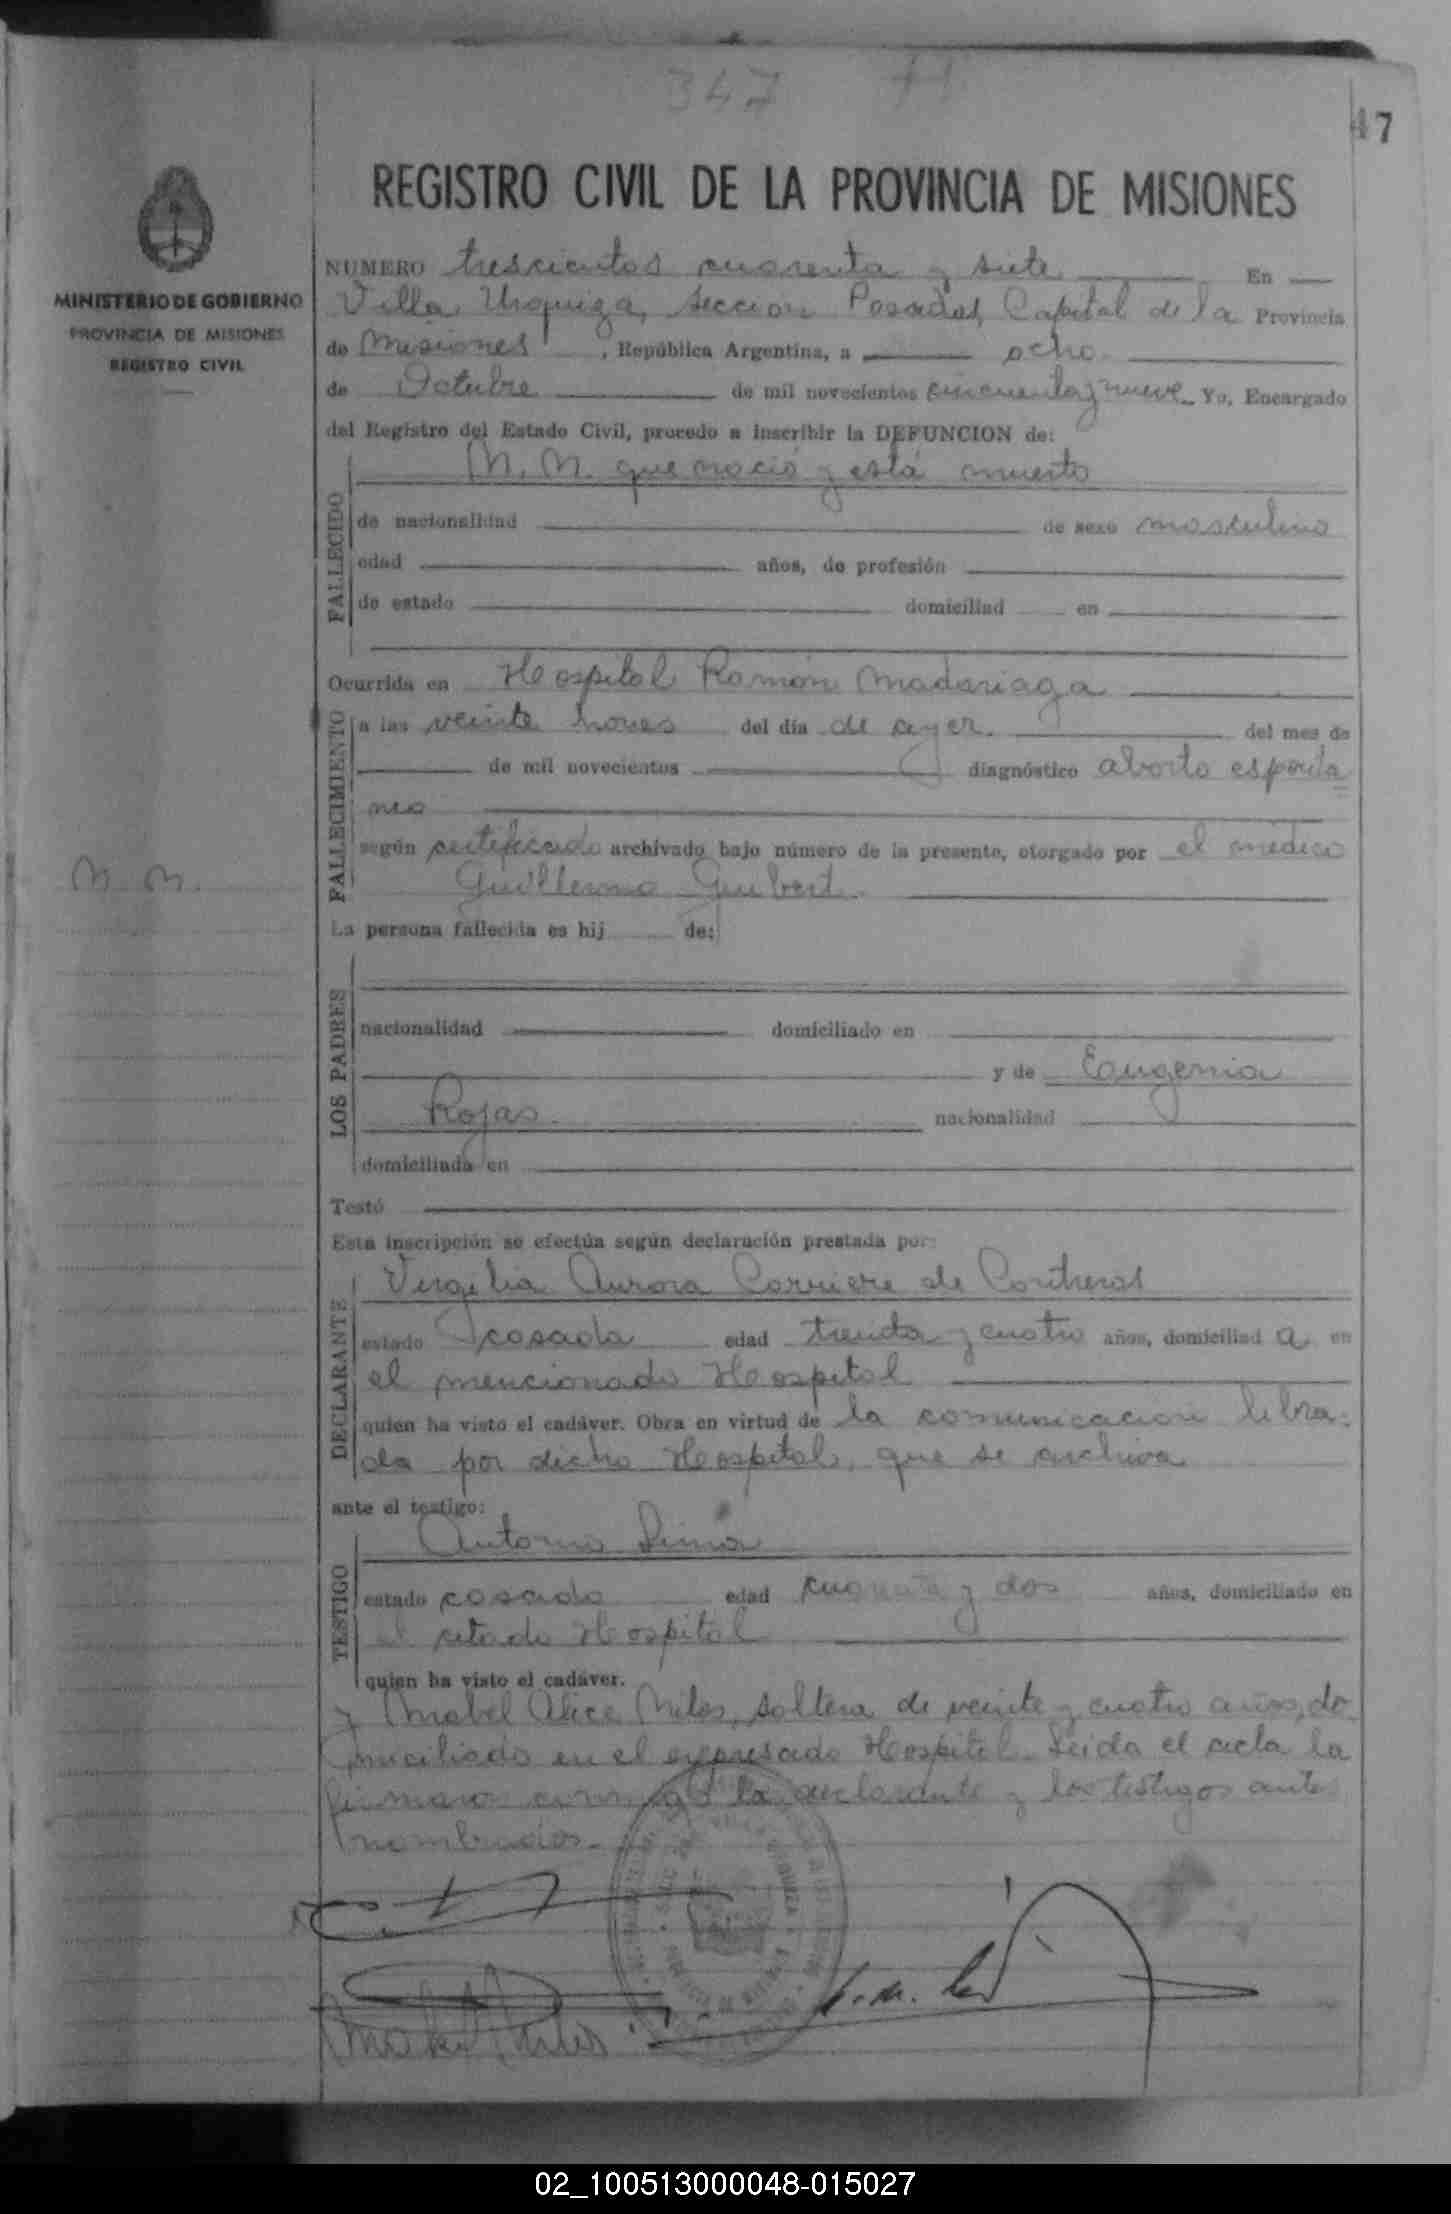 347
47
REGISTRO CIVIL DE LA PROVINCIA DE MISIONES
MINISTERIO DE GOBIERNO
PROVINCIA DE MISIONES
REGISTRO CIVIL
NUMERO trescientos cuarenta y siete En
Villa Urquiza, seccion Posadas, Capital de la Provincia
de Misiones, República Argentina, a ocho
de Octubre de mil novecientos cincuenta y nueve Yo, Encargado
del Registro del Estado Civil, procedo a inscribir la DEFUNCION de:
N. N. que nació y está muerto
FALLECIDO
de nacionalidad de sexo masculino
edad años, de profesión
de estado domiciliad en
Ocurrida en Hospital Ramón Madariaga
FALLECIMIENTO
a las veinte horas del día de ayer. del mes de
de mil novecientos diagnóstico aborto esponta
neo
según certificado archivado bajo número de la presente, otorgado por el médico
Guillermo
N. N.
La persona fallecida es hij de:
LOS PADRES
nacionalidad domiciliado en
y de Eougenia
Rojas. nacionalidad
domiciliada en
Testó
Esta inscripción se efectúa según declaración prestada por:
DECLARANTE
Virgilia Aurora de Contreras
estado casada edad treinta y cuatro años, domiciliad a en
el mencionado Hospital
quien ha visto el cadáver. Obra en virtud de la comunicacion libra-
da por dicho Hospital, que se archiva
ante el testigo:
TESTIGO
Antonio
estado casado edad cuarenta y dos años, domiciliado en
el citado Hospital
quien ha visto el cadáver.
y Mabel Alice soltera de veinte y cuatro años, do
miciliada en el expresado Hospital. Leida el acta la
firmaron conmigo la declarante y los testigos antes
nombrados.-
02_100513000048-015027